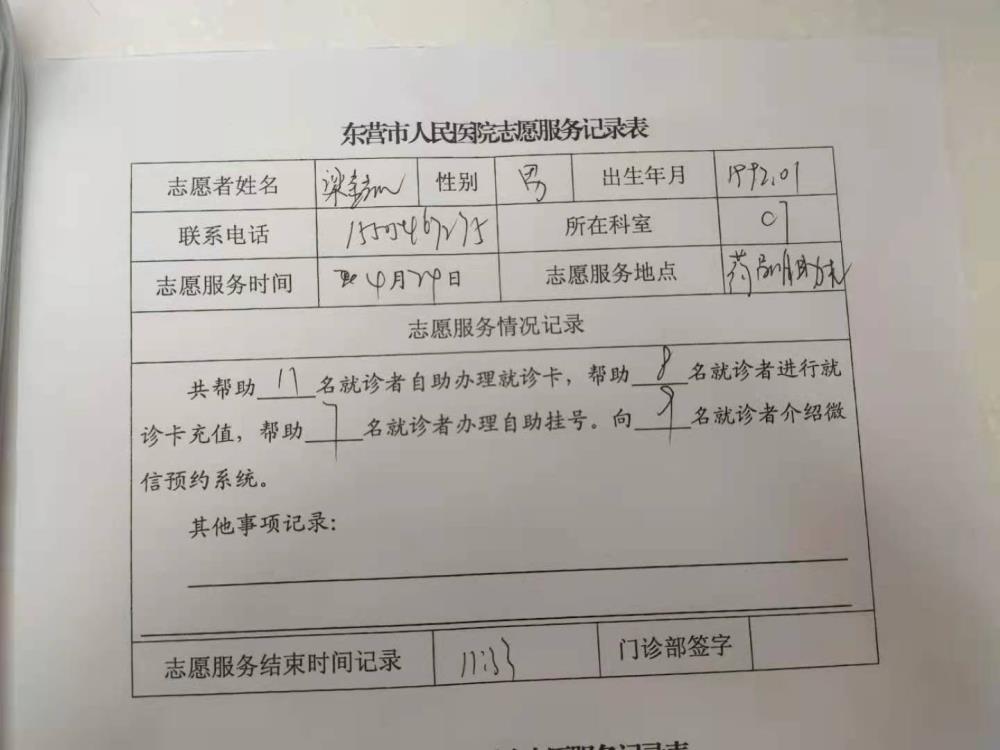 东营市人民医院志愿服务记录表
志愿者姓名 梁 性别 男 出生年月 1992.01
联系电话 所在科室
志愿服务时间 4月24日 志愿服务地点 药
志愿服务情况记录
共帮助 17 名就诊者自助办理就诊卡，帮助 8 名就诊者进行就
诊卡充值，帮助 7 名就诊者办理自助挂号。向 9 名就诊者介绍微
信预约系统。
其他事项记录：
志愿服务结束时间记录 11:33 门诊部签字